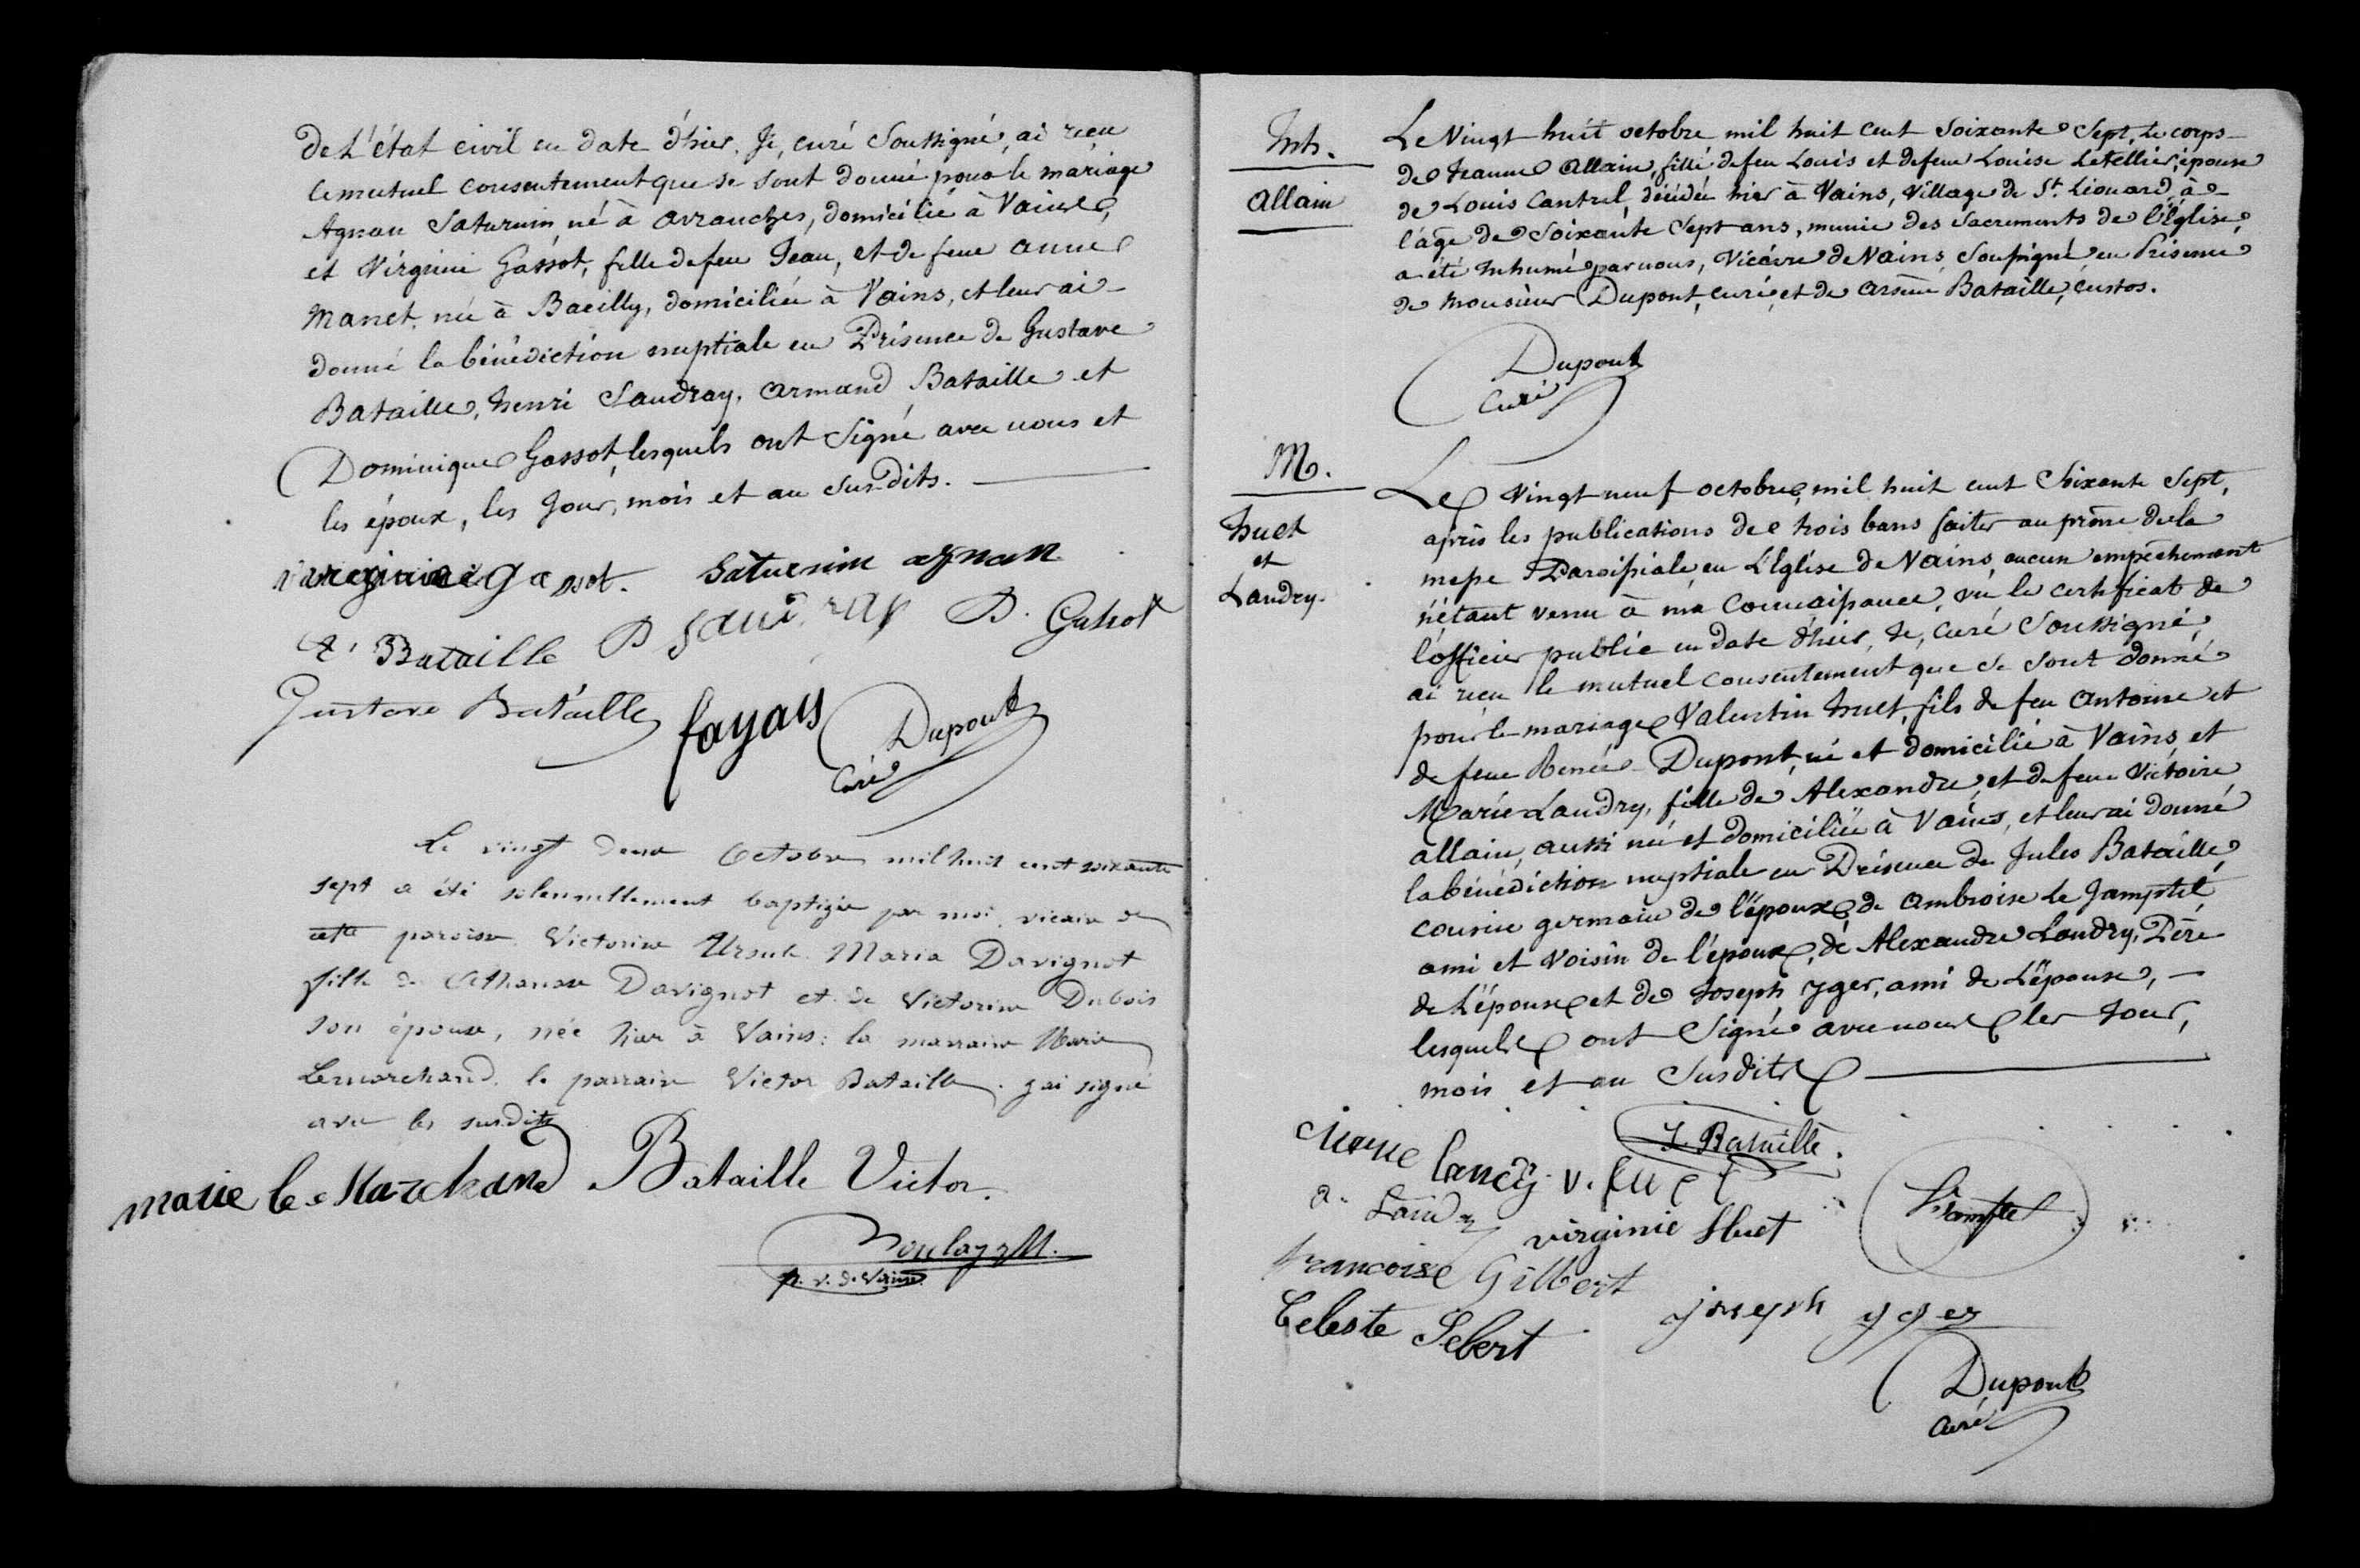 de L'état civil en date d'hier. Je, curé Soussigné, ai reçu
le mutuel consentement que se sont donné pour le mariage
Agnan Saturnin né à avranches, domicilié à Vains,
et Virginie Gassot, fille de feu Jean, et de feue anne
Manet, née à Bacilly, domiciliée à Vains, et leur ai
donné la bénédiction nuptiale en Présence de Gustave
Bataille, henri Saudray, armand Bataille et
Dominique Gassot, lesquels ont Signé avec nous et
les époux, les Jour, mois et an Susdits.
virginie gassot. Saturnin agnan
A. Bataille Saudray D. Gassot
Gustave Bataille fayais Dupont
Curé
Le vingt deux Octobre mil huit cent soixante
sept a été solennellement baptizée par moi vicaire de
cette paroisse Victorine Ursule Maria Davignot
fille de Athanase Davignot et de Victorine Dubois
son épouse, née hier à Vains; la marraine Marie
Lemarchand. le parrain Victor Bataille. j'ai signé
avec les susdits
marie le Marchand Bataille Victor.
p. v. de Vains
Inh.
allain
Le Vingt huit octobre mil huit cent Soixante Sept, le corps
de Jeanne allain, fille de feu Louis et de feue Louise Letellier, épouse
de Louis Cantrel, décédée hier à Vains, Village de St. Léonard, à
l'âge de Soixante Sept ans, munie des Sacrements de l'Eglise,
a été Inhumé par nous, Vicaire de Vains Soussigné en Présence
de Monsieur Dupont, curé, et de arsène Bataille, custos.
Dupont
Curé
M.
huet
et
Landry.
Le Vingt neuf octobre, mil huit cent Soixante Sept,
après les publications de trois bans faites au prône de la
messe Paroissiale en L'Eglise de Vains, aucun empêchement
n'étant venu à ma Connaissance, vu le certificat de
l'officier public en date d'hier, Je, Curé Soussigné,
ai reçu le mutuel consentement que se sont donné
pour le mariage Valentin huet, fils de feu Antoine et
de feue Renée Dupont, né et domicilié à Vains, et
Marie Landry, fille de Alexandre, et de feue Victoire
allain, aussi née et domiciliée à Vains, et leur ai donné
la bénédiction nuptiale en Présence de Jules Bataille,
cousin germain de l'époux, de Ambroise Le Jamptel,
ami et voisin de l'époux, de Alexandre Landry, Père
de L'épouse et de Joseph yger, ami de L'épouse,
lesquels ont Signé avec nous les Jour,
mois et an Susdits
J. Bataille.
Marie landry v. huet
a. Landry virginie Huet
francoise Gilbert
Celeste Sebert joseph yger
Dupont
curé